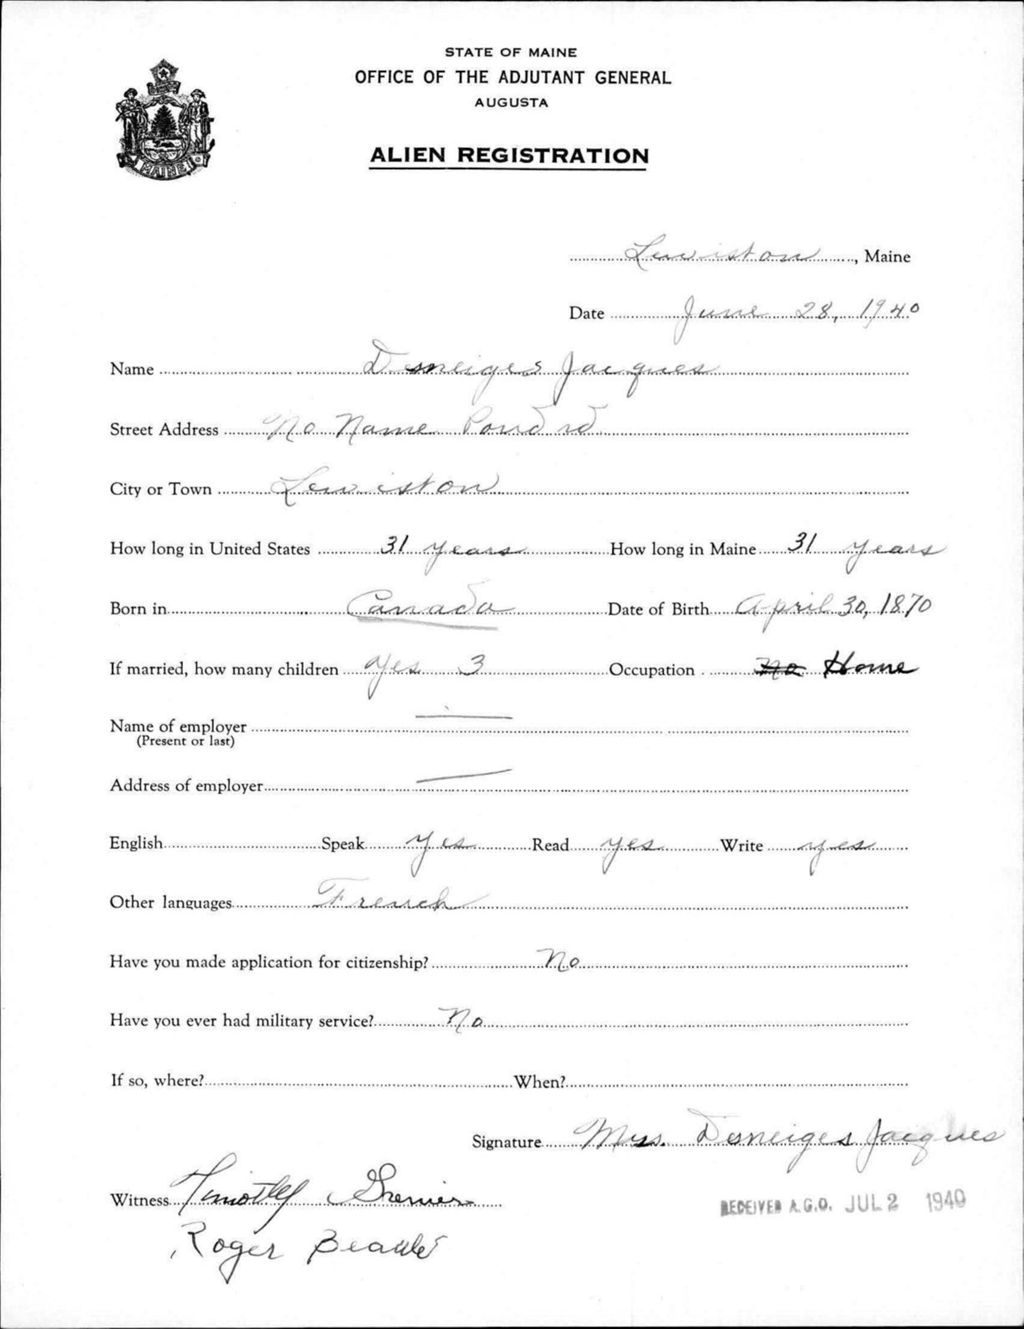 STATE OF MAINE
OFFICE OF THE ADJUTANT GENERAL
AUGUSTA
ALIEN REGISTRATION
MAINE
Lewiston, Maine
Date June 28, 1940
Name Demeiges Jacques
Street Address No Name Pond rd
City or Town Lewiston
How long in United States 31 years How long in Maine 31 years
Born in Canada Date of Birth April 30, 1870
If married, how many children yes 3 Occupation No Home
Name of employer
(Present or last)
Address of employer
English Speak yes Read yes Write yes
Other languages French
Have you made application for citizenship? No
Have you ever had military service? No
If so, where? When?
Signature Mrs. Demeiges Jacques
Witness Timothy Grenier
Roger
RECEIVED A.G.O. JUL 2 1940